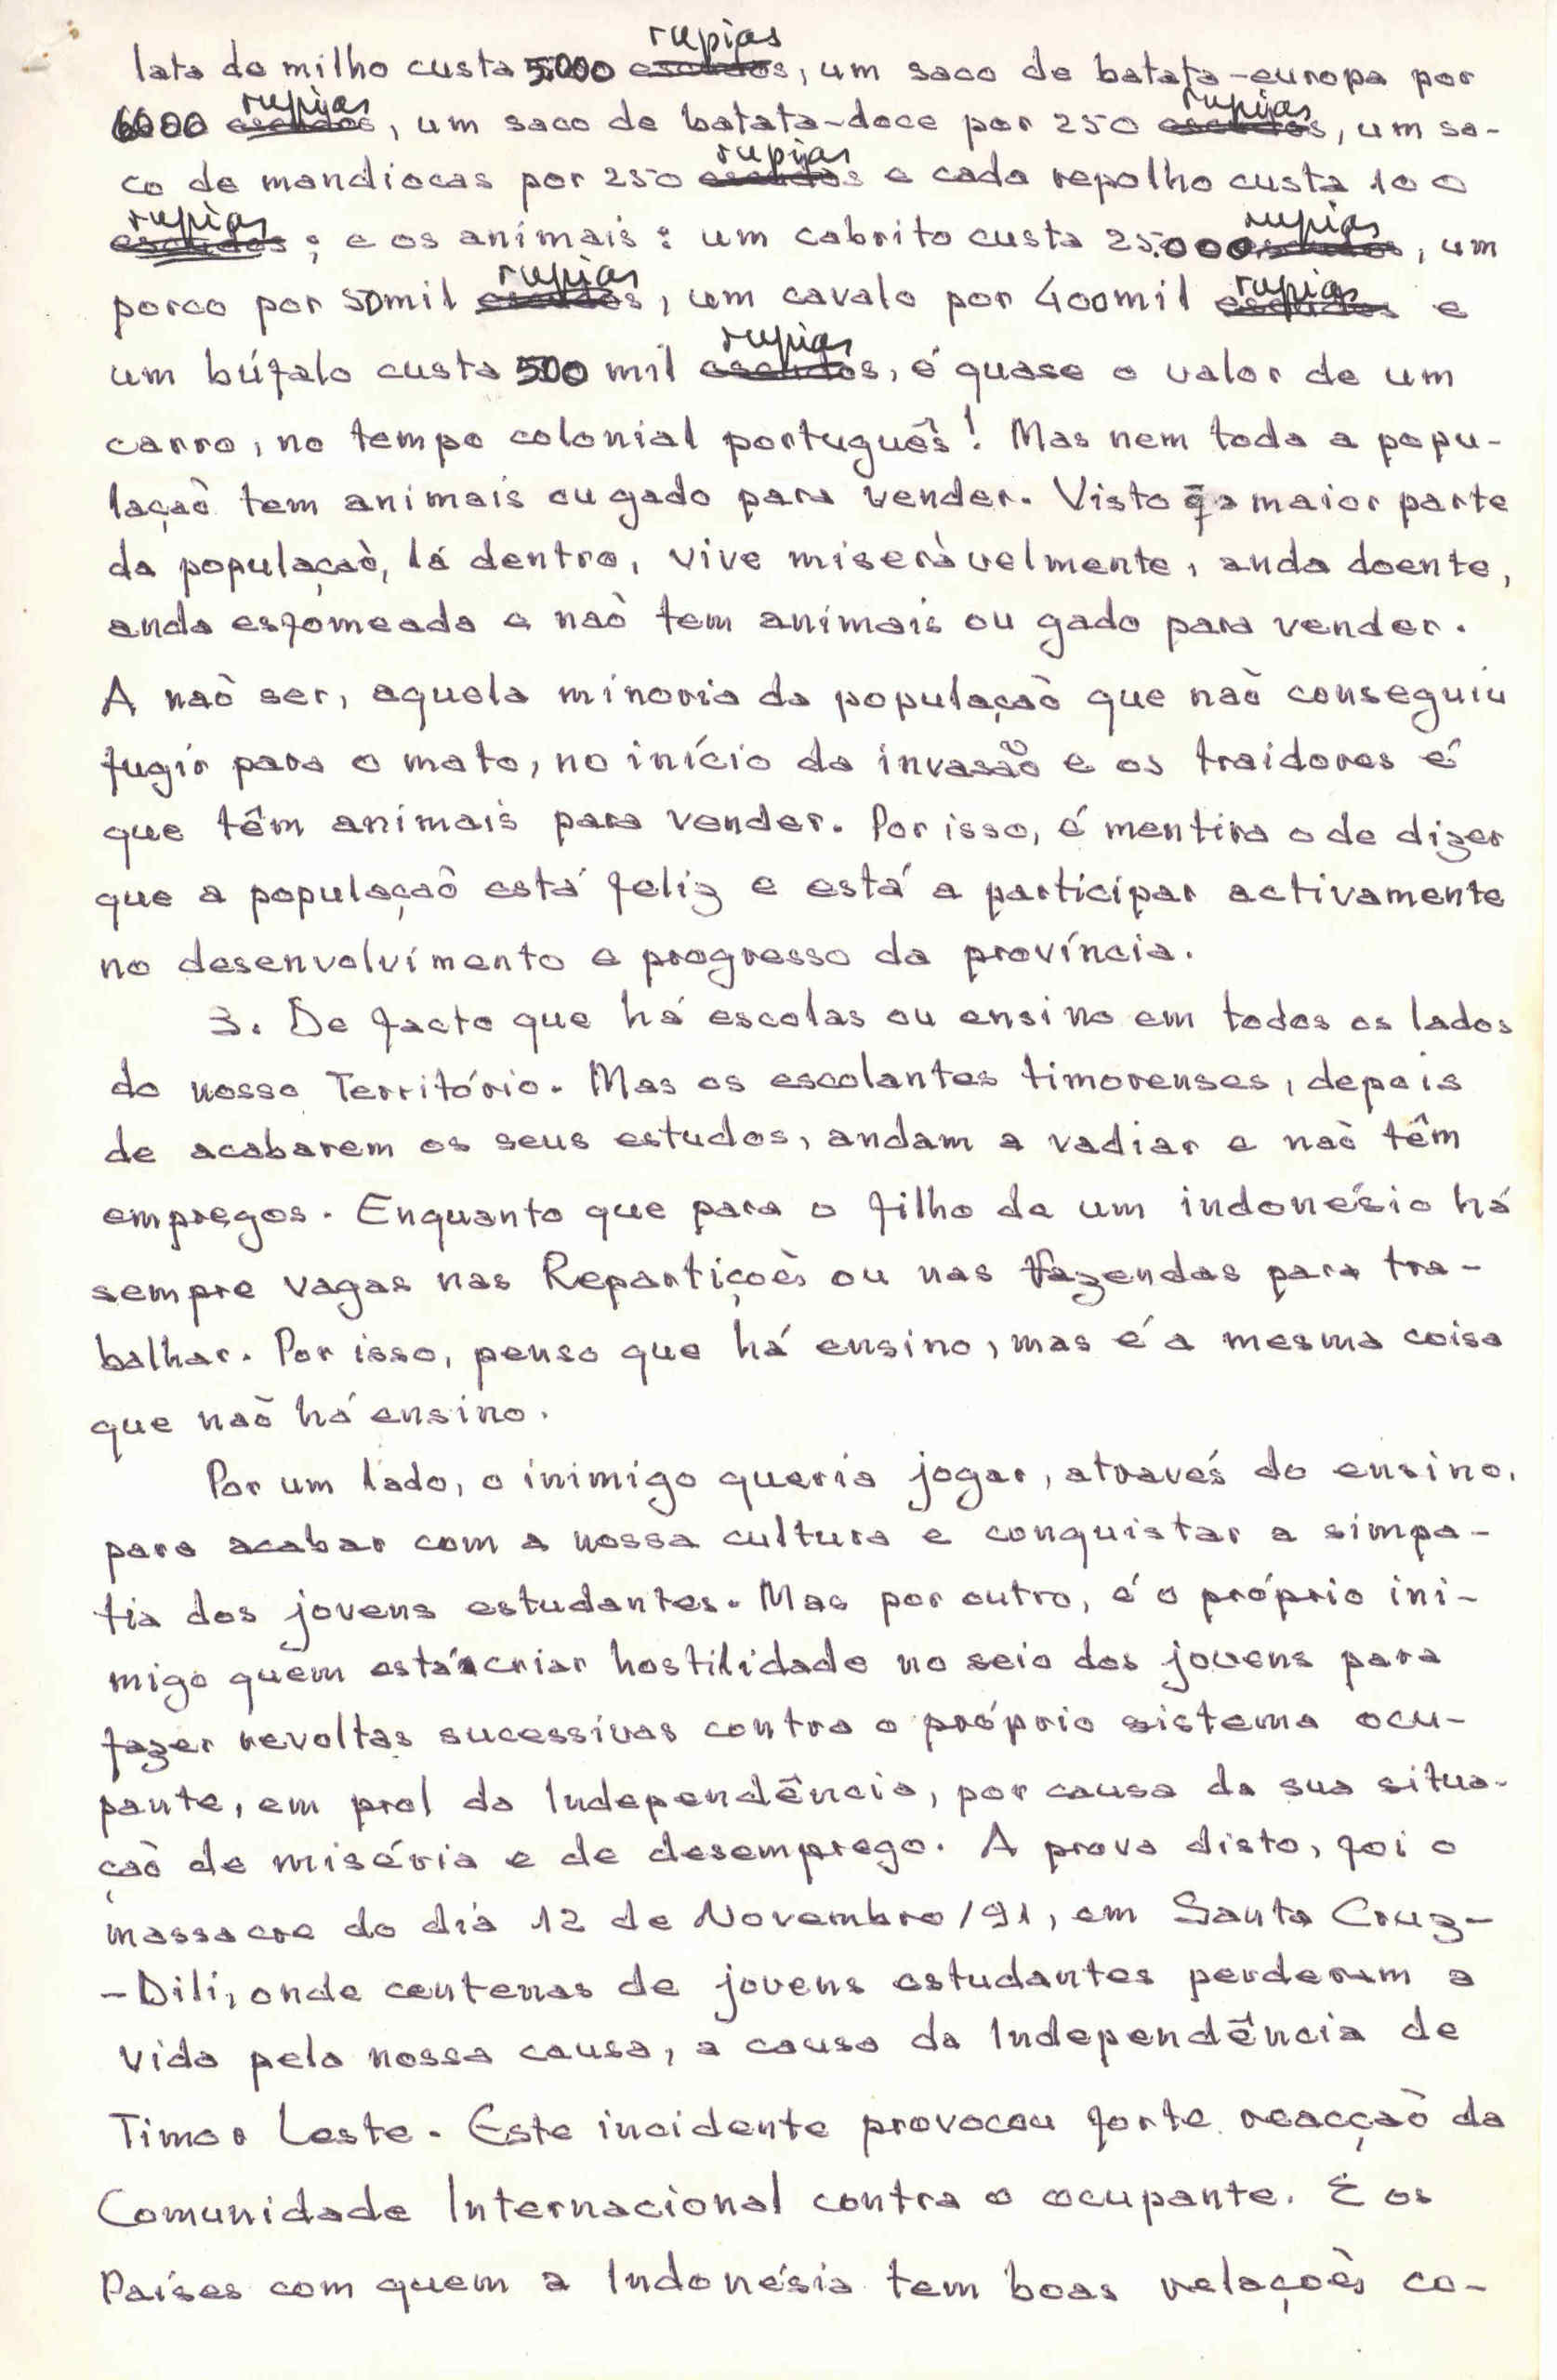 lata de milho custa 5.000 escudos rupias, um saco de batata-europa por
6000 escudos rupias, um saco de batata-doce por 250 escudos rupias, um sa-
co de mandiocas por 250 escudos rupias e cada repolho custa 100
escudos rupias; e os animais: um cabrito custa 25.000 escudos rupias, um
porco por 50mil escudos rupias, um cavalo por 400mil escudos rupias e
um búfalo custa 500 mil escudos rupias, é quase o valor de um
carro, no tempo colonial português! Mas nem toda a popu-
laçaò tem animais ou gado para vender. Visto q̃ a maior parte
da populaçaò, lá dentro, vive miseràvelmente, anda doente,
anda esfomeada e naò tem animais ou gado para vender.
A naò ser, aquela minoria da populaçaò que naò conseguiu
fugir para o mato, no início da invasão e os traidores é
que têm animais para vender. Por isso, é mentira o de dizer
que a populaçaò está feliz e está a participar activamente
no desenvolvimento e progresso da província.
3. De facto que há escolas ou ensino em todos os lados
do nosso Território. Mas os escolantes timorenses, depois
de acabarem os seus estudos, andam a vadiar e naò têm
empregos. Enquanto que para o filho de um indonésio há
sempre vagas nas Repartiçoès ou nas Fazendas para tra-
balhar. Por isso, penso que há ensino, mas é a mesma coisa
que naò há ensino.
Por um lado, o inimigo queria jogar, através do ensino,
para acabar com a nossa cultura e conquistar a simpa-
tia dos jovens estudantes. Mas por outro, é o próprio ini-
migo quem está a criar hostilidade no seio dos jovens para
fazer revoltas sucessivas contra o próprio sistema ocu-
pante, em prol da Independência, por causa da sua situa-
çaò de miséria e de desemprego. A prova disto, foi o
massacre do dia 12 de Novembro/91, em Santa Cruz-
-Dili, onde centenas de jovens estudantes perderam a
vida pela nossa causa, a causa da Independência de
Timor Leste. Este incidente provocou forte reacçaò da
Comunidade Internacional contra o ocupante. E os
Países com quem a Indonésia tem boas relaçoès co-